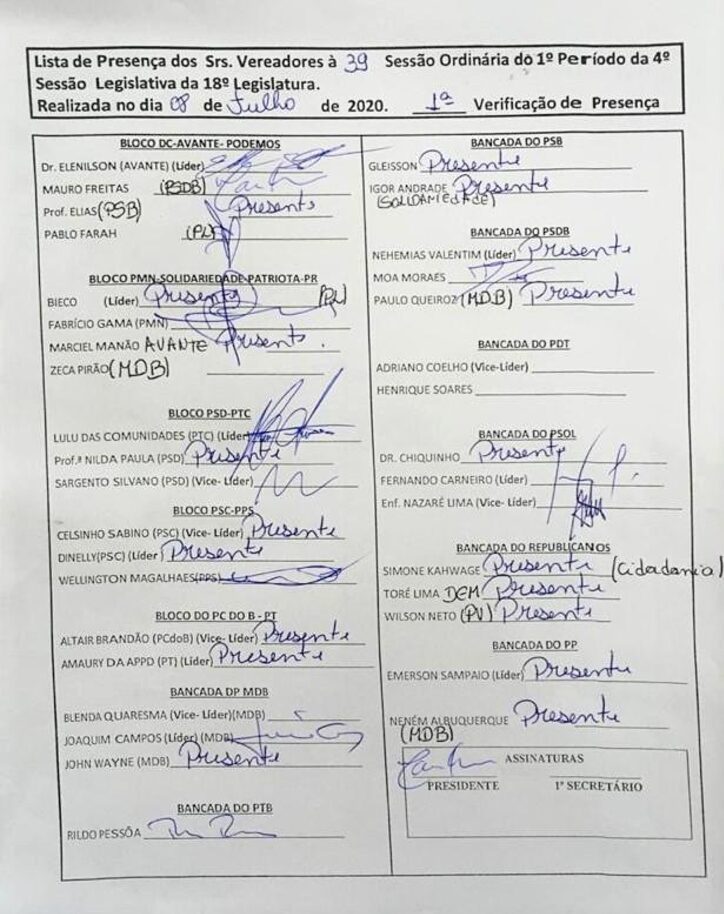 Lista de Presença dos Srs. Vereadores à 39 Sessão Ordinária do 1º Período da 4º
Sessão Legislativa da 18º Legislatura.
Realizada no dia 08 de Julho de 2020. 1ª Verificação de Presença
BLOCO DC-AVANTE- PODEMOS
Dr. ELENILSON (AVANTE) (Líder)
MAURO FREITAS (PSDB)
Prof. ELIAS (PSB) Presente
PABLO FARAH (PL)
BLOCO PMN-SOLIDARIEDADE-PATRIOTA-PR
BIECO (Líder) Presente (PL)
FABRÍCIO GAMA (PMN)
MARCIEL MANÃO AVANTE Presente.
ZECA PIRÃO (MDB)
BLOCO PSD-PTC
LULU DAS COMUNIDADES (PTC) (Líder)
Prof.ª NILDA PAULA (PSD) Presente
SARGENTO SILVANO (PSD) (Vice- Líder)
BLOCO PSC-PPS
CELSINHO SABINO (PSC) (Vice- Líder) Presente
DINELLY(PSC) (Líder) Presente
WELLINGTON MAGALHAES(PPS)
BLOCO DO PC DO B - PT
ALTAIR BRANDÃO (PCdoB) (Vice- Líder) Presente
AMAURY DA APPD (PT) (Líder) Presente
BANCADA DP MDB
BLENDA QUARESMA (Vice- Líder)(MDB)
JOAQUIM CAMPOS (Líder) (MDB)
JOHN WAYNE (MDB) Presente
BANCADA DO PTB
RILDO PESSÔA
BANCADA DO PSB
GLEISSON Presente
IGOR ANDRADE Presente
BANCADA DO PSDB
NEHEMIAS VALENTIM (Líder) Presente
MOA MORAES
PAULO QUEIROZ (MDB) Presente
BANCADA DO PDT
ADRIANO COELHO (Vice-Líder)
HENRIQUE SOARES
BANCADA DO PSOL
DR. CHIQUINHO Presente
FERNANDO CARNEIRO (Líder)
Enf. NAZARÉ LIMA (Vice- Líder)
BANCADA DO REPUBLICANOS
SIMONE KAHWAGE Presente (Cidadania)
TORÉ LIMA DEM Presente
WILSON NETO (PV) Presente
BANCADA DO PP
EMERSON SAMPAIO (Líder) Presente
NENÉM ALBUQUERQUE Presente
(MDB)
ASSINATURAS
PRESIDENTE 1º SECRETÁRIO